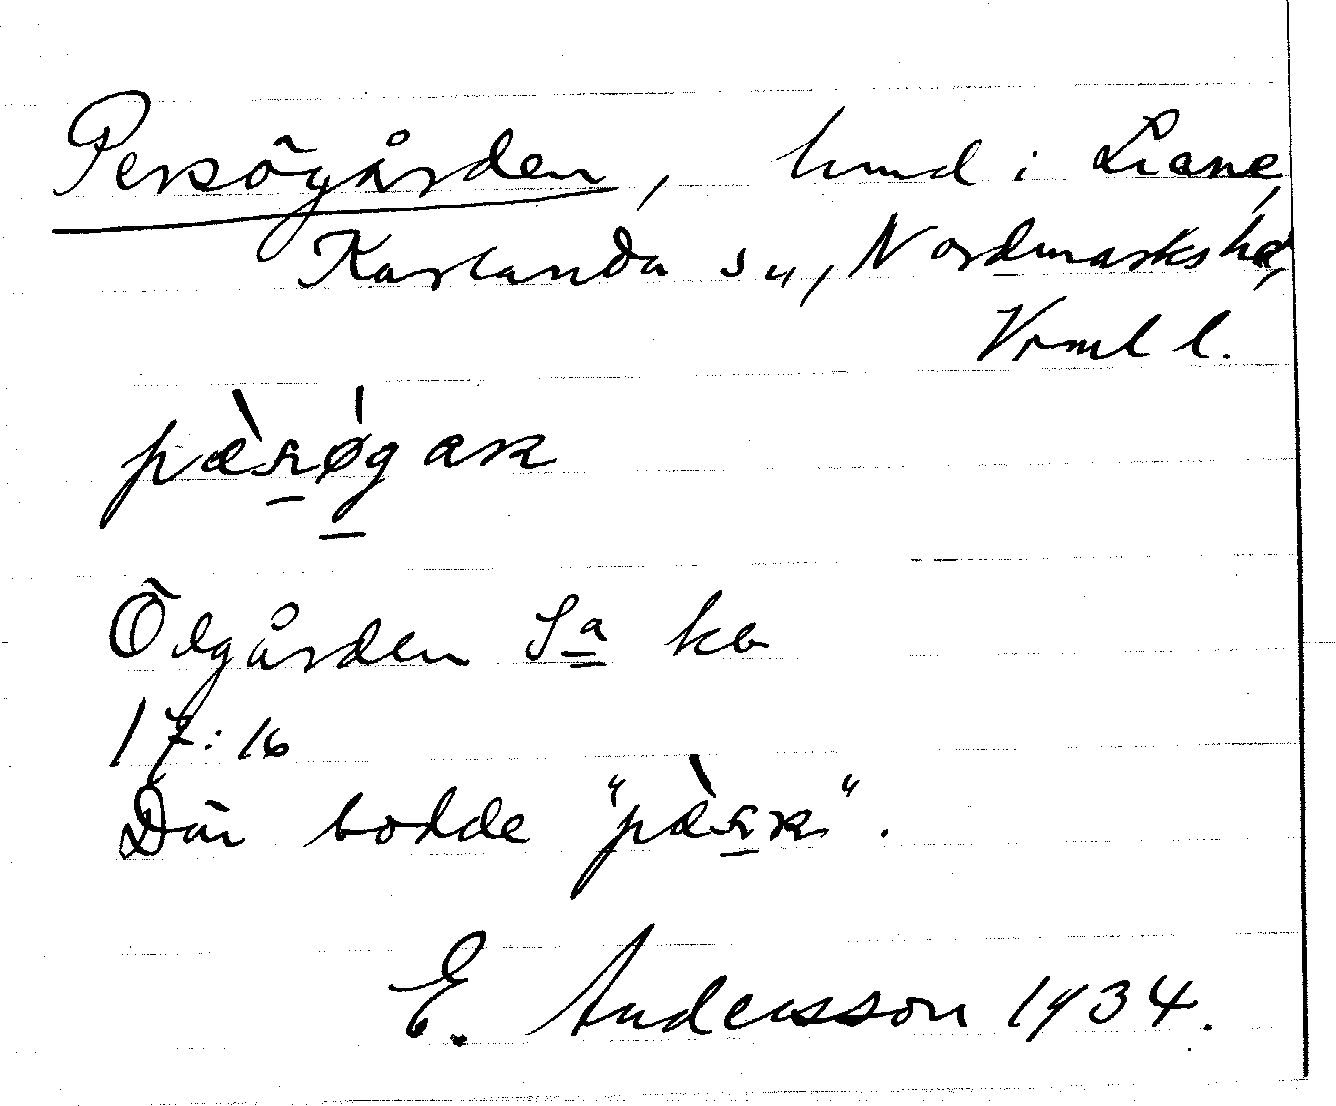 Persögården, hmd i Liane,
Karlanda sn, Nordmarks hd,
Vrml l.
pæ̀ṟøg̱aɴ
Ödgården Sa ke
17:16
Där bodde "pæ̀ṟɴ".
E. Andersson 1934.